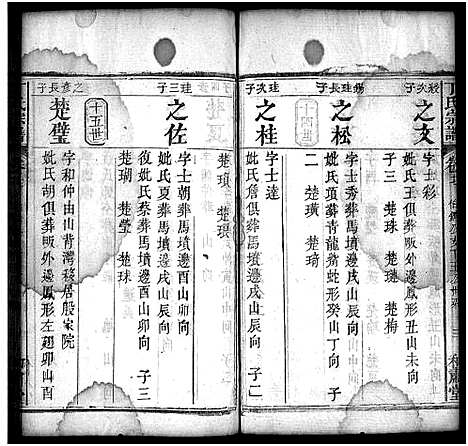 氏宗譜
之文
字士彩
妣氏王俱葬畈外邊鳳形丑山未向
子三 楚珠 楚梅
十四世
之松
字士秀葬馬墳邊戌山辰向
妣氏項葬青龍嘴蛇形癸山丁向 子
二 楚璜 楚琦
珪次子
之桂
字士達
妣氏詹俱葬馬墳邊戌山辰向 子二
楚瓆
珪三子
之佐
字士朝葬馬墳邊酉山卯向
妣氏夏葬馬墳邊戌山辰向
復妣氏蔡葬馬墳邊酉山卯向 子三
楚瑚 楚瑩 楚球
十五世
之彥長子
楚璧
字和仲由山背灣移居殷家院
妣氏胡俱葬畈外邊鳳形左翅卯山酉